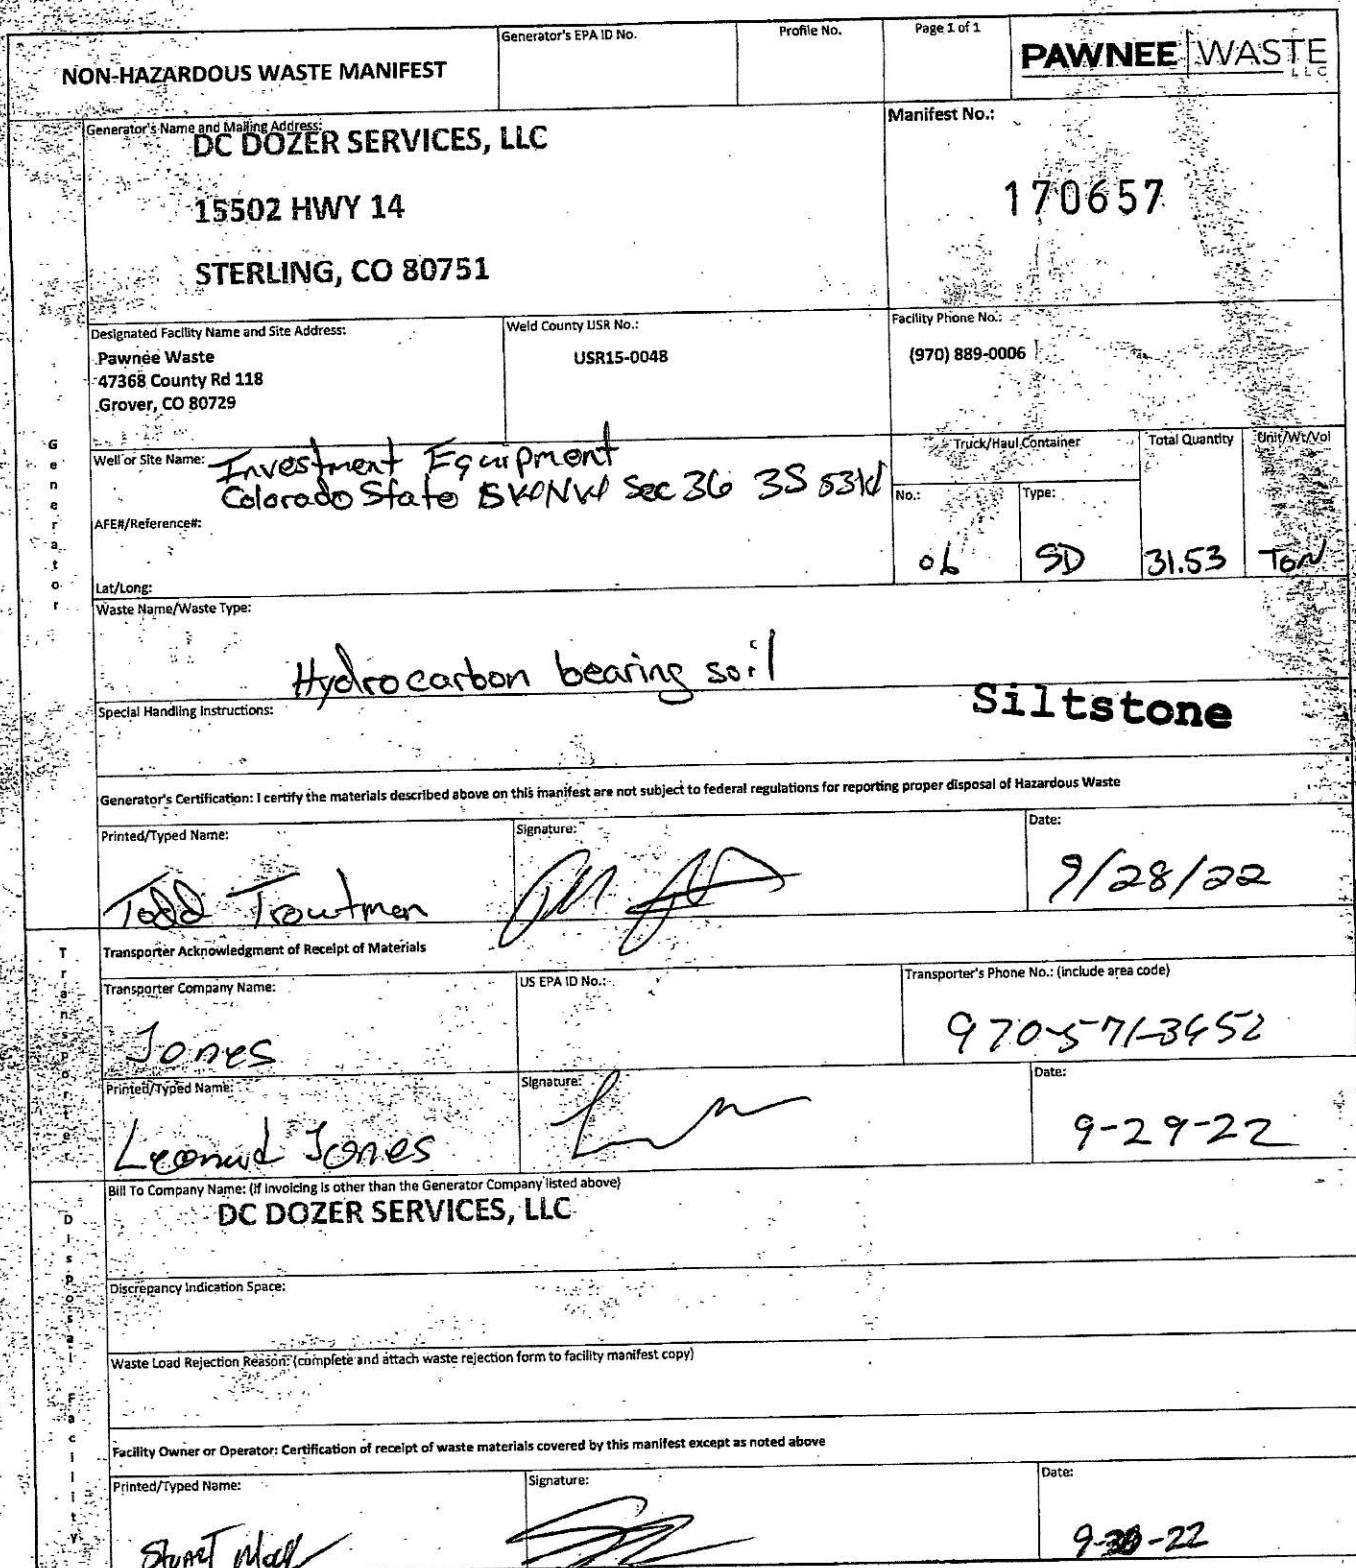 NON-HAZARDOUS WASTE MANIFEST
Generator's EPA ID No.
Profile No.
Page 1 of 1
PAWNEE WASTE
LLC
Generator's Name and Mailing Address:
DC DOZER SERVICES, LLC
15502 HWY 14
STERLING, CO 80751
Manifest No.:
170657
Designated Facility Name and Site Address:
Pawnee Waste
47368 County Rd 118
Grover, CO 80729
Weld County USR No.:
USR15-0048
Facility Phone No.:
(970) 889-0006
Generator
Well or Site Name: Investment Equipment
Colorado State Sec 36 3S 53W
AFE#/Reference#:
Lat/Long:
Truck/Haul Container
No.:
06
Type:
SD
Total Quantity
31.53
Unit/Wt/Vol
TON
Waste Name/Waste Type:
Hydrocarbon bearing soil
Special Handling Instructions:
Siltstone
Generator's Certification: I certify the materials described above on this manifest are not subject to federal regulations for reporting proper disposal of Hazardous Waste
Printed/Typed Name:
Todd Troutman
Signature:
Date:
9/28/22
Transporter
Transporter Acknowledgment of Receipt of Materials
Transporter Company Name:
Jones
US EPA ID No.:
Transporter's Phone No.: (include area code)
970-571-3452
Printed/Typed Name:
Leonard Jones
Signature:
Date:
9-29-22
Disposal Facility
Bill To Company Name: (If invoicing is other than the Generator Company listed above)
DC DOZER SERVICES, LLC
Discrepancy Indication Space:
Waste Load Rejection Reason: (complete and attach waste rejection form to facility manifest copy)
Facility Owner or Operator: Certification of receipt of waste materials covered by this manifest except as noted above
Printed/Typed Name:
Signature:
Date:
9-30-22